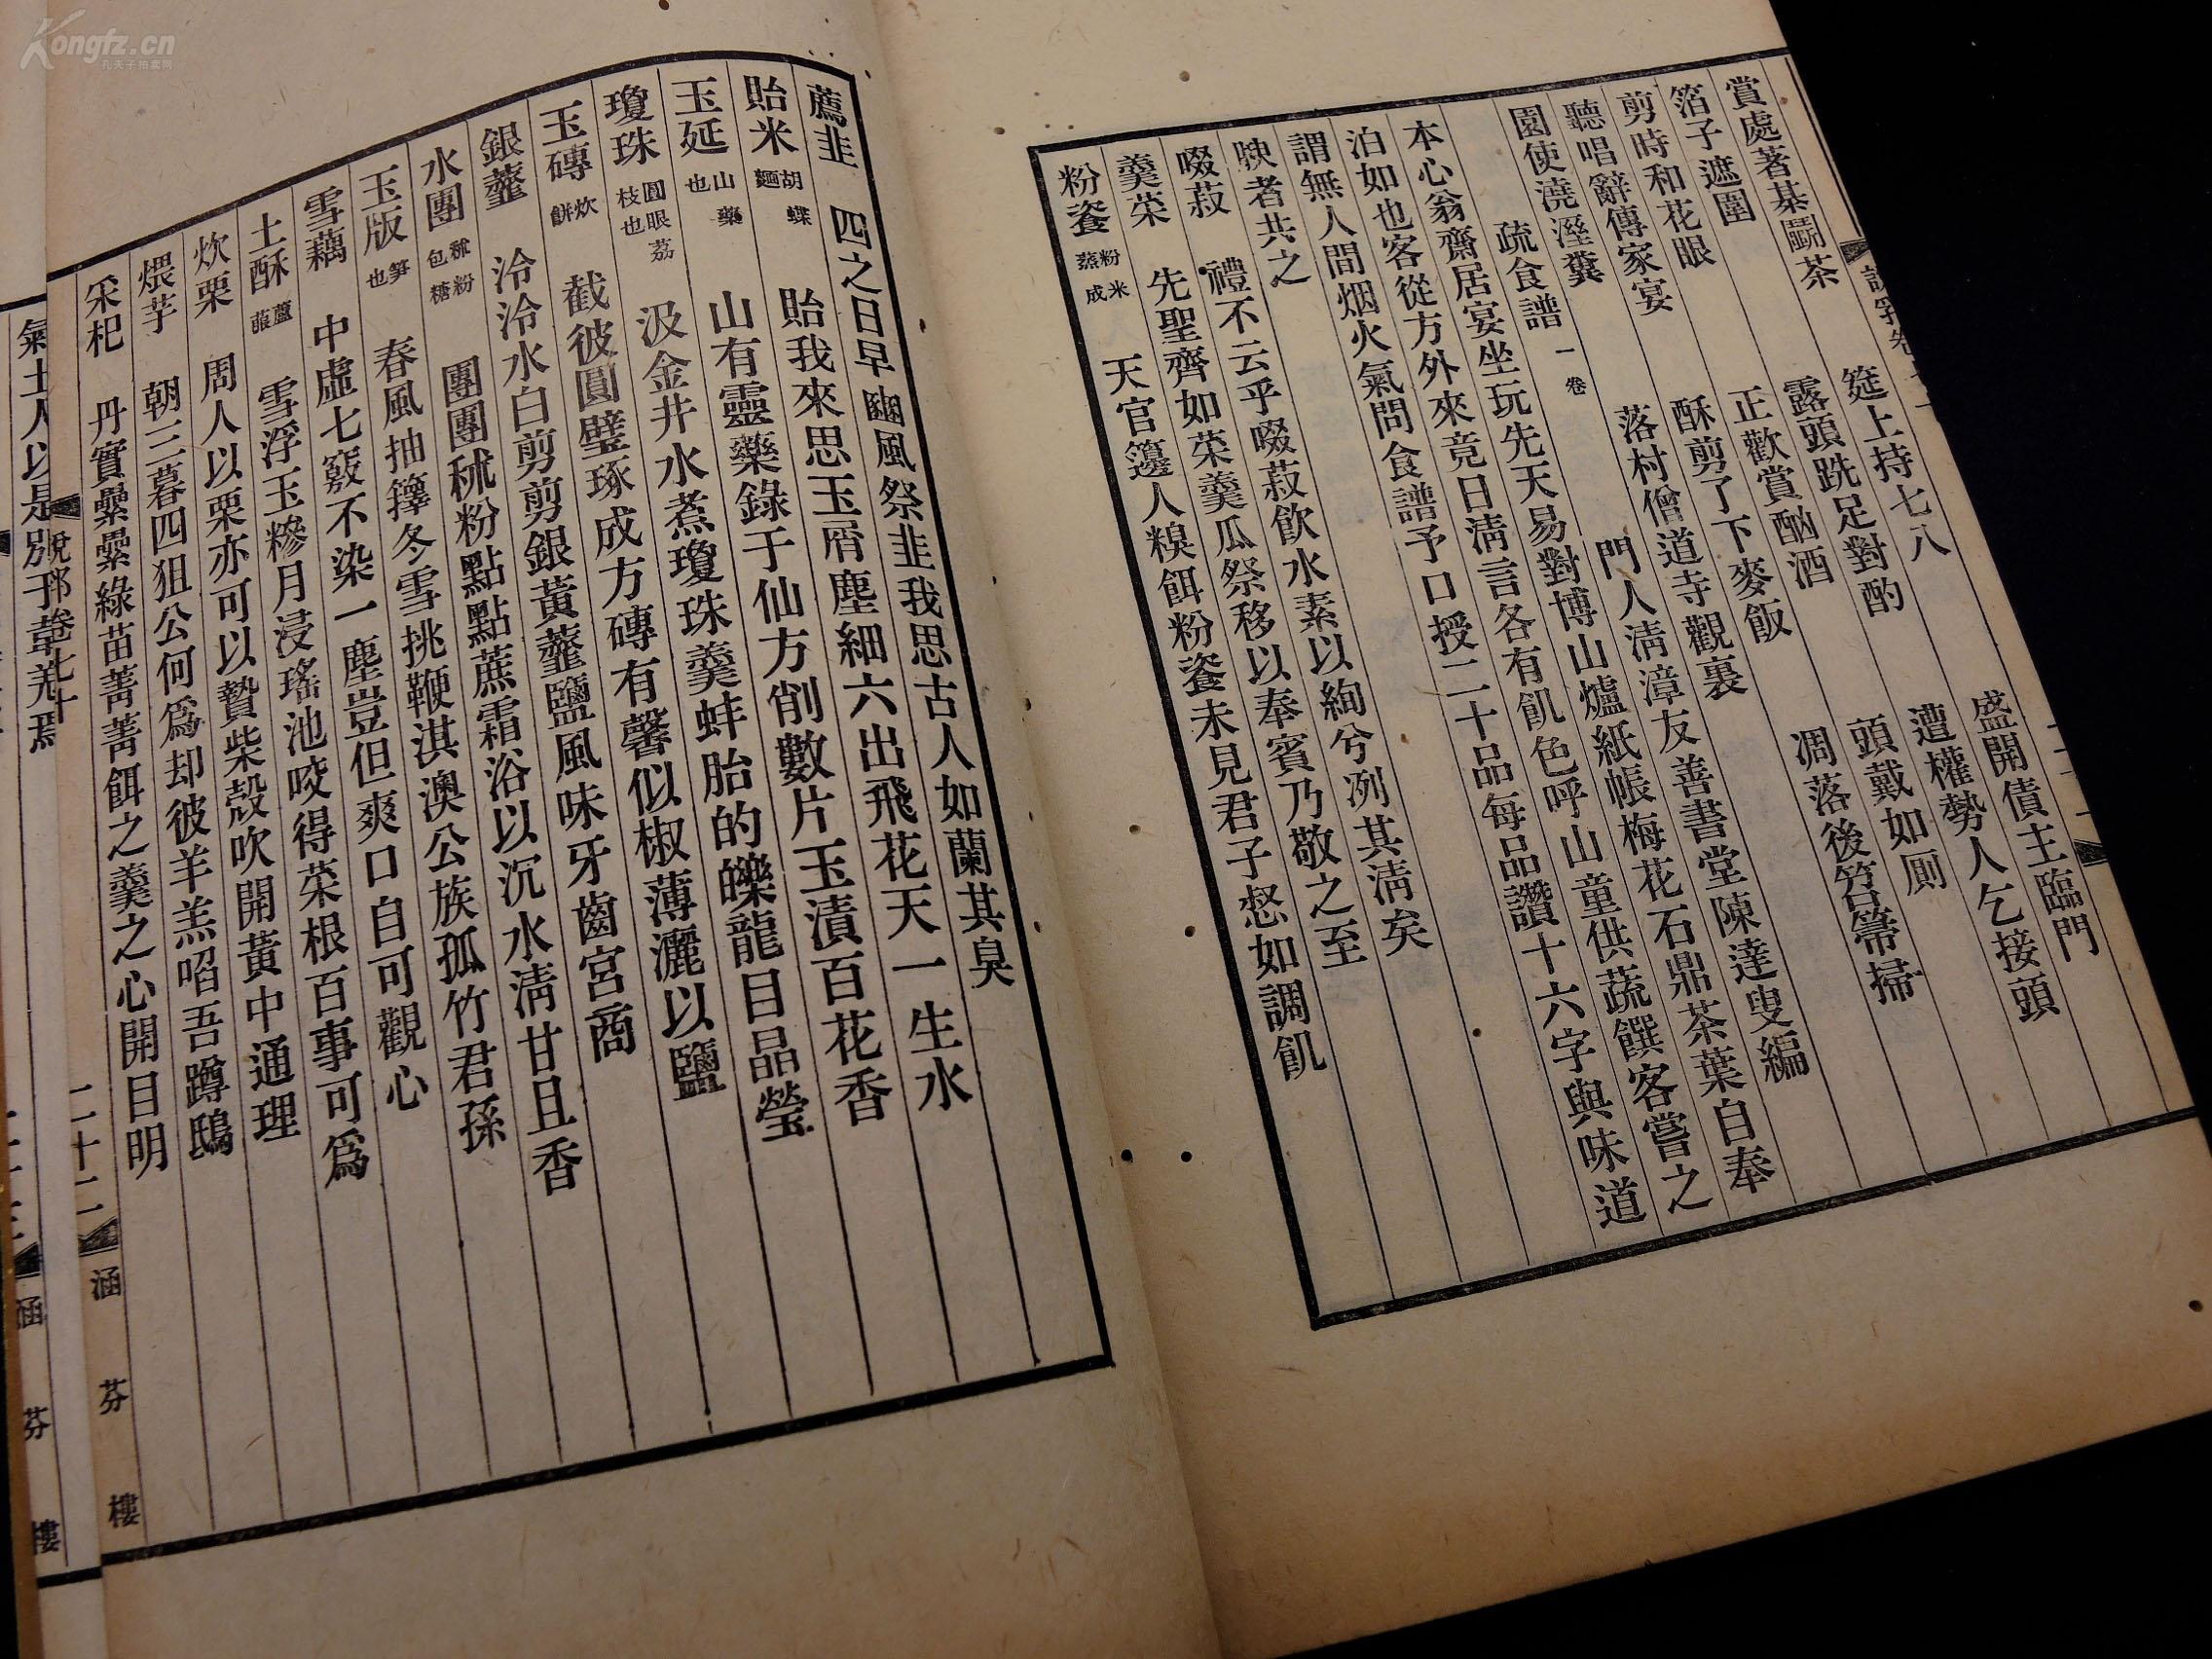 Kongfz.cn
孔夫子拍卖网
筵上持七八 盛開債主臨門
賞處著棊鬬茶 露頭跣足對酌 遭權勢人乞接頭
箔子遮圍 正歡賞酗酒 頭戴如厠
剪時和花眼 酥剪了下麥飯 凋落後笤帚掃
聽唱辭傳家宴 落村僧道寺觀裏
園使澆溼糞
疏食譜 一卷 門人淸漳友善書堂陳達叟編
本心翁齋居宴坐玩先天易對博山爐紙帳梅花石鼎茶葉自奉
泊如也客從方外來竟日淸言各有飢色呼山童供蔬饌客嘗之
謂無人間烟火氣問食譜予口授二十品每品讚十六字與味道
腴者共之
啜菽 禮不云乎啜菽飮水素以絢兮冽其淸矣
羹菜 先聖齊如菜羹瓜祭移以奉賓乃敬之至
粉餈 粉米蒸成 天官籩人糗餌粉餈未見君子惄如調飢
薦韭 四之日早豳風祭韭我思古人如蘭其臭
貽米 胡蝶麵 貽我來思玉屑塵細六出飛花天一生水
玉延 山藥也 山有靈藥錄于仙方削數片玉漬百花香
瓊珠 圓眼荔枝也 汲金井水煮瓊珠羹蚌胎的皪龍目晶瑩
玉磚 炊餅 截彼圓璧琢成方磚有馨似椒薄灑以鹽
銀虀 泠泠水白剪剪銀黃虀鹽風味牙齒宮商
水團 秫粉包糖 團團秫粉點點蔗霜浴以沉水淸甘且香
玉版 笋也 春風抽籜冬雪挑鞭淇澳公族孤竹君孫
雪藕 中虛七竅不染一塵豈但爽口自可觀心
土酥 蘆菔 雪浮玉糝月浸瑤池咬得菜根百事可爲
炊栗 周人以栗亦可以贄柴殼吹開黃中通理
煨芋 朝三暮四狙公何爲却彼羊羔啗吾蹲鴟
采杞 丹實纍纍綠苗菁菁餌之羹之心開目明
說郛卷七十 二十二 涵芬樓
氣士人以是別
涵芬樓